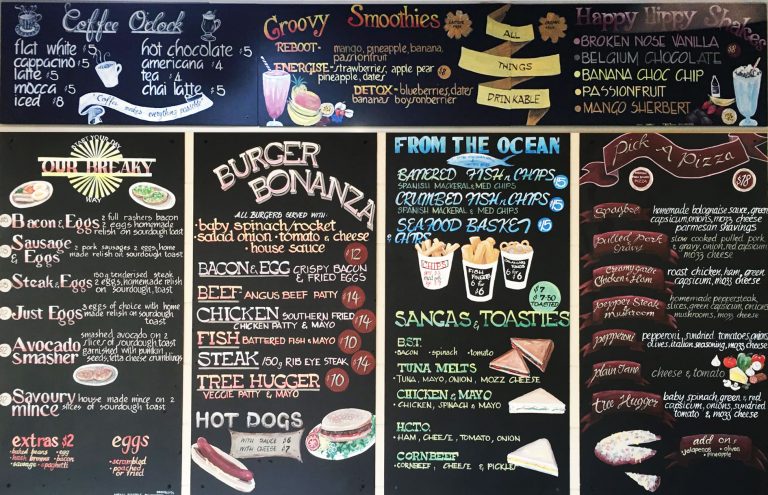 Coffee O'clock
flat white $5
cappacino $5
latte $5
mocca $5
iced $8
hot chocolate $5
americana $4
tea $4
chai latte $5
"Coffee makes everything possible"
Groovy Smoothies
REBOOT- mango, pineapple, banana, passionfruit
ENERGISE- strawberries, apple pear pineapple, dates
DETOX- blueberries, dates
bananas boysonberrier
$8
ALL
THINGS
DRINKABLE
Happy Hippy Shakes
• BROKEN NOSE VANILLA
• BELGIUM CHOCOLATE
• BANANA CHOC CHIP
• PASSIONFRUIT
• MANGO SHERBERT
$8
START YOUR DAY
OUR BREAKY
WAY
Bacon & Eggs 2 full rashers bacon
2 eggs homemade
relish on sourdough toast
Sausage & Eggs 2 pork sausages 2 eggs home
made relish on sourdough toast
Steak & Eggs 150g tenderised steak
2 eggs, homemade relish
on sourdough, toast
Just Eggs 3 eggs of choice with home
made relish on sourdough
toast
Avocado smasher smashed avocado on 2
slices of sourdough toast
garnished with pumkin
seeds, feta cheese crumblings
Savoury mince house made mince on 2
slices of sourdough toast
extras $2
• baked beans • egg
• hash browns • bacon
• sausage • spaghetti
eggs
• scrambled
• poached
or fried
BURGER
BONANZA
ALL BURGERS SERVED WITH:
• baby spinach/rocket
• salad onion • tomato & cheese
• house sauce
BACON & EGG CRISPY BACON
& FRIED EGGS $12
BEEF ANGUS BEEF PATTY $14
CHICKEN SOUTHERN FRIED
CHICKEN PATTY & MAYO $14
FISH BATTERED FISH & MAYO $10
STEAK 150g RIB EYE STEAK $14
TREE HUGGER
VEGGIE PATTY & MAYO $10
HOT DOGS
WITH SAUCE $6
WITH CHEESE $7
FROM THE OCEAN
BATTERED FISH n CHIPS $15
SPANISH MACKERAL & MED CHIPS
CRUMBED FISH n CHIPS $15
SPANISH MACKERAL & MED CHIPS
SEAFOOD BASKET & CHIPS $15
CHIPS!
FISH
6 for
$6
$7
$7-50
TOASTED
SANGAS & TOASTIES
B.S.T.
BACON • spinach • tomato
TUNA MELTS
TUNA, MAYO, ONION, MOZZ CHEESE
CHICKEN & MAYO
• CHICKEN, SPINACH & MAYO
H.C.T.O.
HAM, CHEESE, TOMATO, ONION
CORNBEEF
CORNBEEF, CHEESE & PICKLE
Pick A Pizza
$18
Spagbol homemade bolognaise sauce, green
capsicum, onions, mozz cheese
parmesan shavings
Pulled Pork Gravy slow cooked pulled pork
& gravy, onion, red capsicum
mozz cheese
Creamy garlic Chicken & Ham roast chicken, ham, green
capsicum, mozz cheese
Pepper Steak mushroom homemade peppersteak,
slices, green capsicum, onions,
mushrooms, mozz cheese
pepperoni pepperoni, sundried tomatoes, onions
olives, italian seasoning, mozz cheese
plain Jane cheese & tomato
tree Hugger baby spinach, green & red
capsicum, onions, sundried
tomato & mozz cheese
add on:
• jalapenos • olives
• pineapple